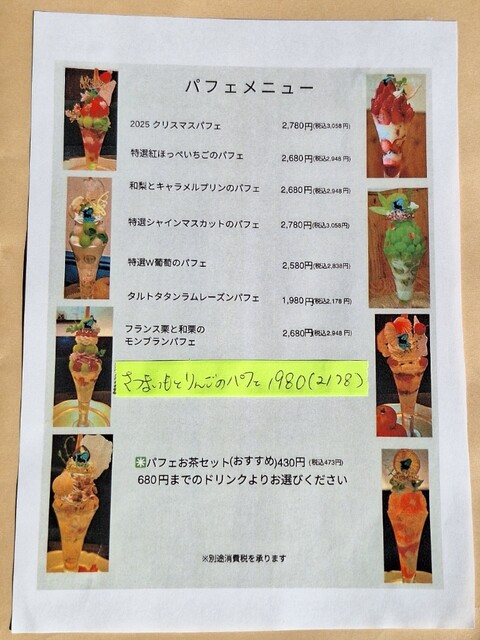 パフェメニュー
2025 クリスマスパフェ 2,780円(税込3,058円)
特選紅ほっぺいちごのパフェ 2,680円(税込2,948円)
和梨とキャラメルプリンのパフェ 2,680円(税込2,948円)
特選シャインマスカットのパフェ 2,780円(税込3,058円)
特選W葡萄のパフェ 2,580円(税込2,838円)
タルトタタンラムレーズンパフェ 1,980円(税込2,178円)
フランス栗と和栗の
モンブランパフェ 2,680円(税込2,948円)
さつまいもとりんごのパフェ 1980(2178)
※パフェお茶セット(おすすめ)430円(税込473円)
680円までのドリンクよりお選びください
※別途消費税を承ります